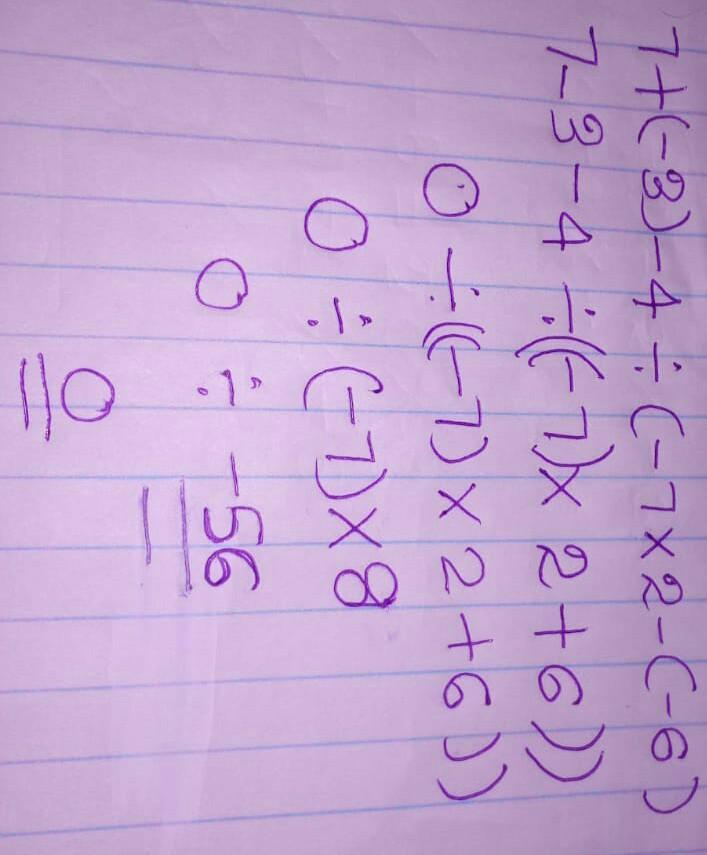 7+(-3)-4÷(-7×2-(-6)
7-3-4÷((-7)×2+6))
0÷((-7)×2+6))
0÷(-7)×8
0÷-56
0